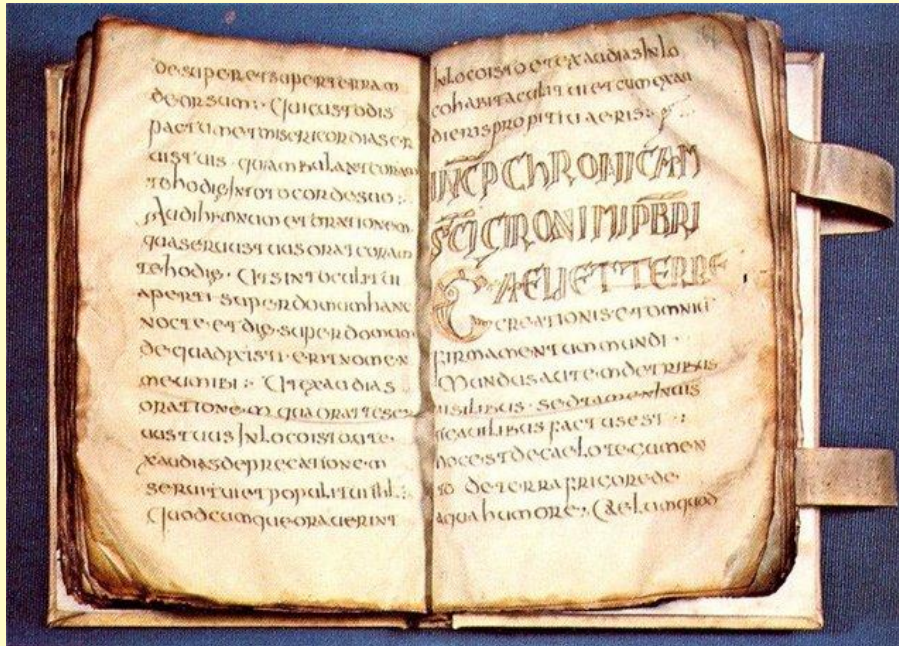 desuper et super terram
deorsum : Qui custodis
pactum et misericordias er
uis tuis · qui ambulant coram
te hodie in toto corde suo :
Audi hymnum et orationem
qua seruus tuus orat coram
te hodie · Ut sint oculi tui
aperti super domum hanc
nocte et die · super domum
de qua dixisti · erit nomen
meum ibi : Ut exaudias
oratione m qua orat te ser
uus tuus In loco isto ut e
xaudias deprecatione m
serui tui et populi tui ihl :
Quodcumque orauerint
In loco isto et exaudias In lo
co habitaculi tui et cum exau
dieris propitiaeris :
INCP CHRONICAM
SCI CIRONIMI PBRI
CAELI ET TERRE
creationis et omniu
firmamentum mundi ·
Mundus autem de tribus
uisilibus · sed tamen
factus est :
hoc est de caelo tegumen
to de terra frigore de
aqua humore · Caelum quod